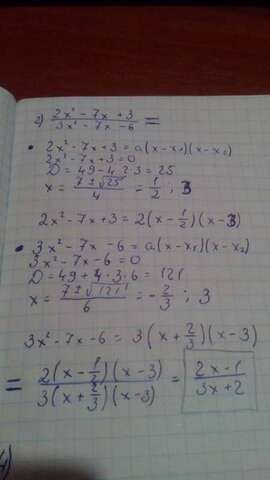 2) (2x² - 7x + 3)/(3x² - 7x - 6) =
• 2x² - 7x + 3 = a(x - x₁)(x - x₂)
2x² - 7x + 3 = 0
D = 49 - 4·2·3 = 25
x = (7 ± √25)/4 = 1/2 ; 3
2x² - 7x + 3 = 2(x - 1/2)(x - 3)
• 3x² - 7x - 6 = a(x - x₁)(x - x₂)
3x² - 7x - 6 = 0
D = 49 + 4·3·6 = 121
x = (7 ± √121)/6 = -2/3 ; 3
3x² - 7x - 6 = 3(x + 2/3)(x - 3)
= (2(x - 1/2)(x - 3))/(3(x + 2/3)(x - 3)) = (2x - 1)/(3x + 2)